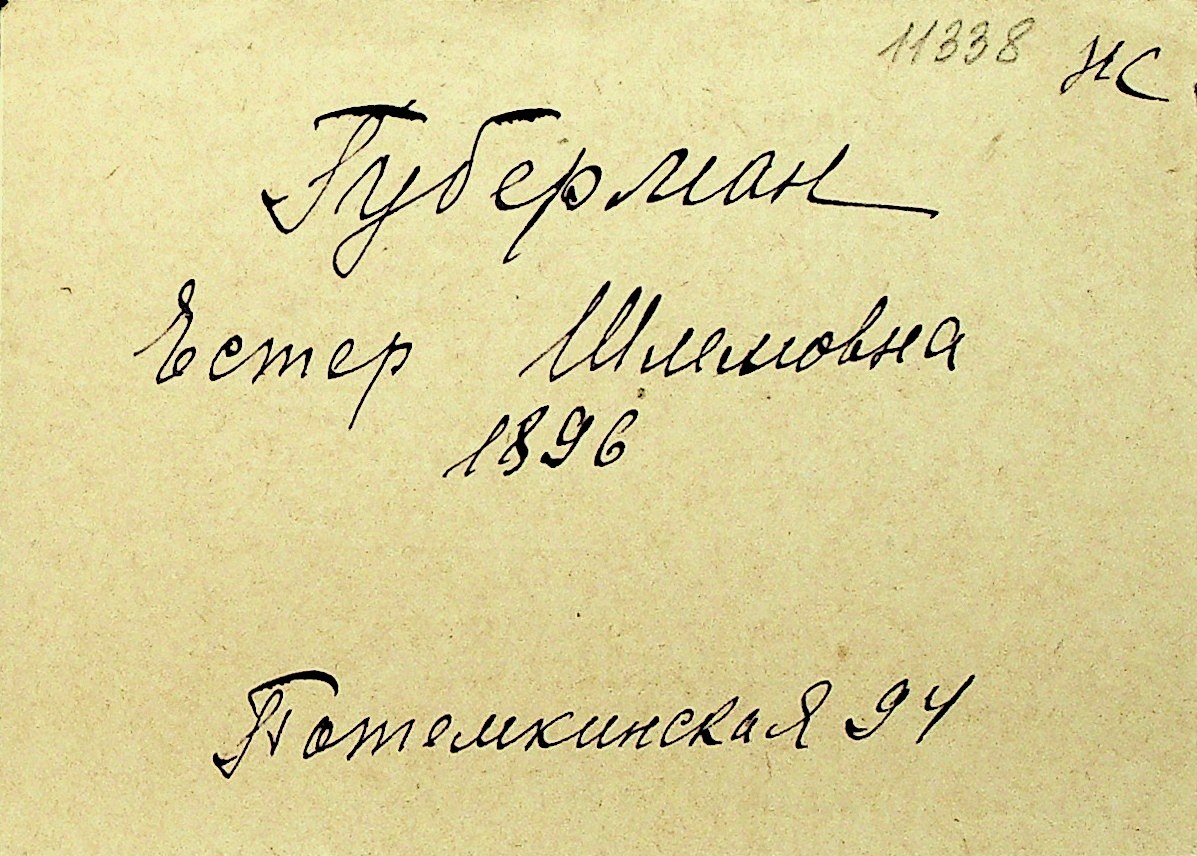 11338 НС
Губерман
Естер Шлемовна
1896
Потемкинская 94